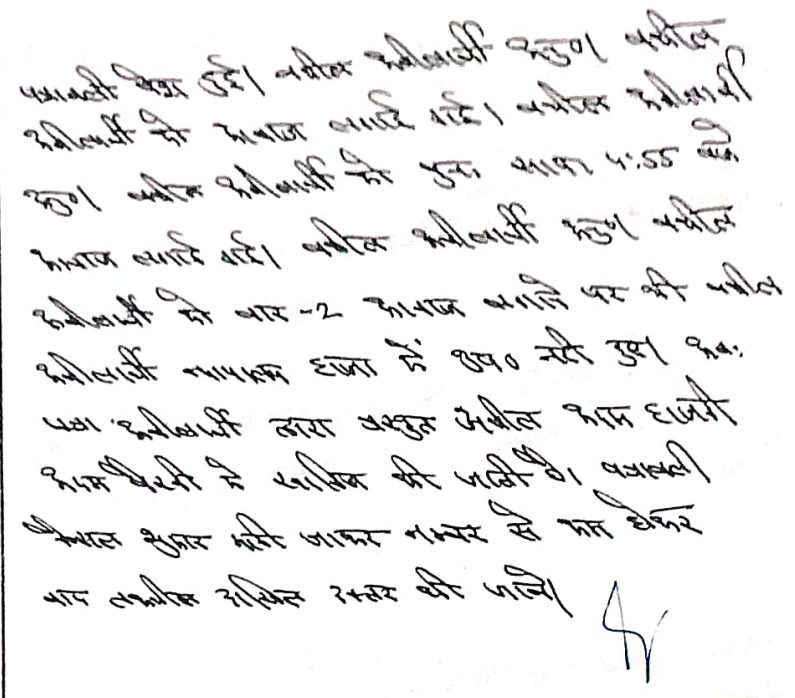 पत्रावली पेश हुई। वकील अपीलार्थी अनु०। वकील
अपीलार्थी को आवाज लगाई गई। वकील अपीलार्थी
अनु०। वकील अपीलार्थी को पुनः सायं 4:55 बजे
आवाज लगाई गई। वकील अपीलार्थी अनु०। वकील
अपीलार्थी को बार-2 आवाज लगाने पर भी वकील
अपीलार्थी न्यायालय हाजा में उप० नहीं हुए। अतः
अपीलार्थी द्वारा प्रस्तुत अपील अदम हाजरी
अदम पैरवी में खारिज की जाती है। पत्रावली
फैसल शुमार की जाकर नम्बर से कम होकर
बाद तकमील दाखिल दफ्तर की जावे।